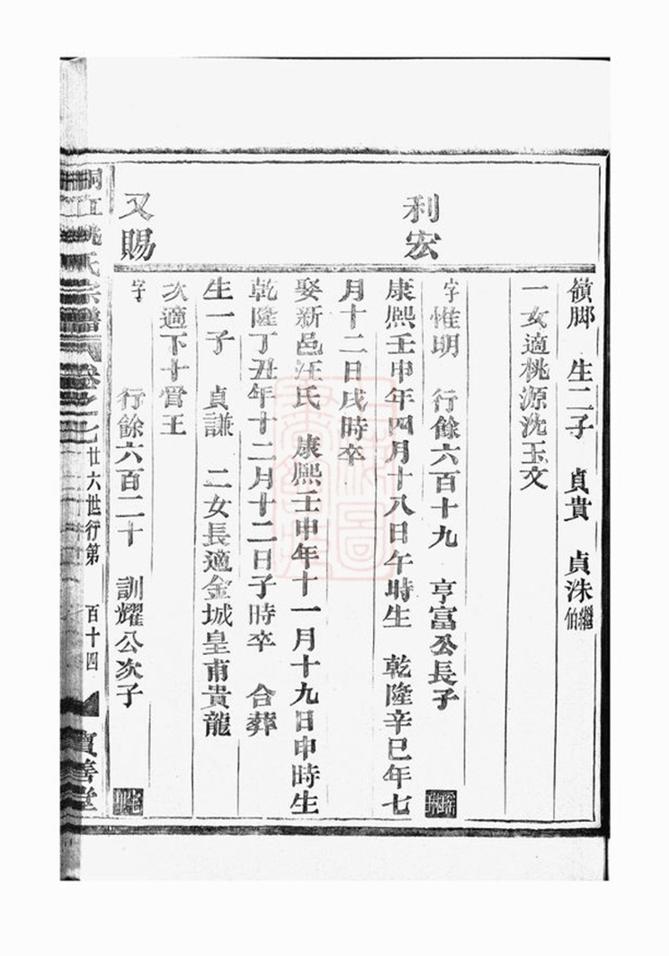 嶺脚　生二子　貞貴　貞洙繼伯
一女適桃源沈玉文
利宏
字惟明　行餘六百十九　亨富公長子
康熙壬申年四月十八日午時生　乾隆辛巳年七
月十二日戌時卒
娶新邑汪氏　康熙壬申年十一月十九日申時生
乾隆丁丑年十二月十二日子時卒　合葬
生一子　貞謙　二女長適金城皇甫貴龍
次適下十管王
又賜
字　行餘六百二十　訓耀公次子
姚氏宗譜　卷之七　廿六世行第　百十四　寶善堂